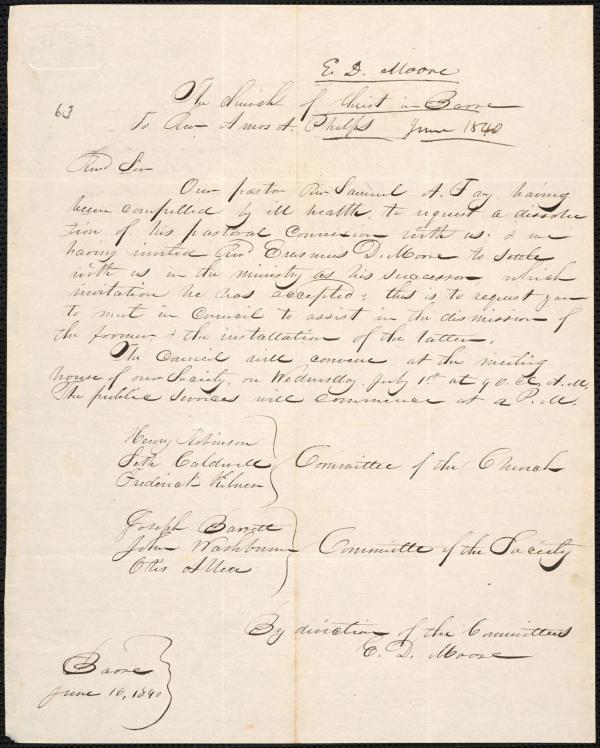 E. D. Moore
63
The church of Christ in Barre
To Rev Amos A. Phelps June 1840
Revd Sir
Our pastor Rev. Samuel A. Fay having
been compelled by ill health, to request a dissolu
tion of his pastoral connexion with us; & we
having invited Revd Erasmus D. Moore to settle
with us in the ministry as his successor, which
invitation he has accepted; this is to request you
to meet in Council to assist in the dismission of
the former & the installation of the latter.
The Council will convene at the meeting
house of our Society, on Wednesday July 1st at 9 o.cl. A.M.
The public services will commence at 2 P.M.
Henry Robinson
Seth Caldwell
Frederick
Committee of the Church
Joseph Barrett
John Washburn
Otis Allen
Committee of the Society
By direction of the Committees
E. D. Moore
Barre
June 16, 1840